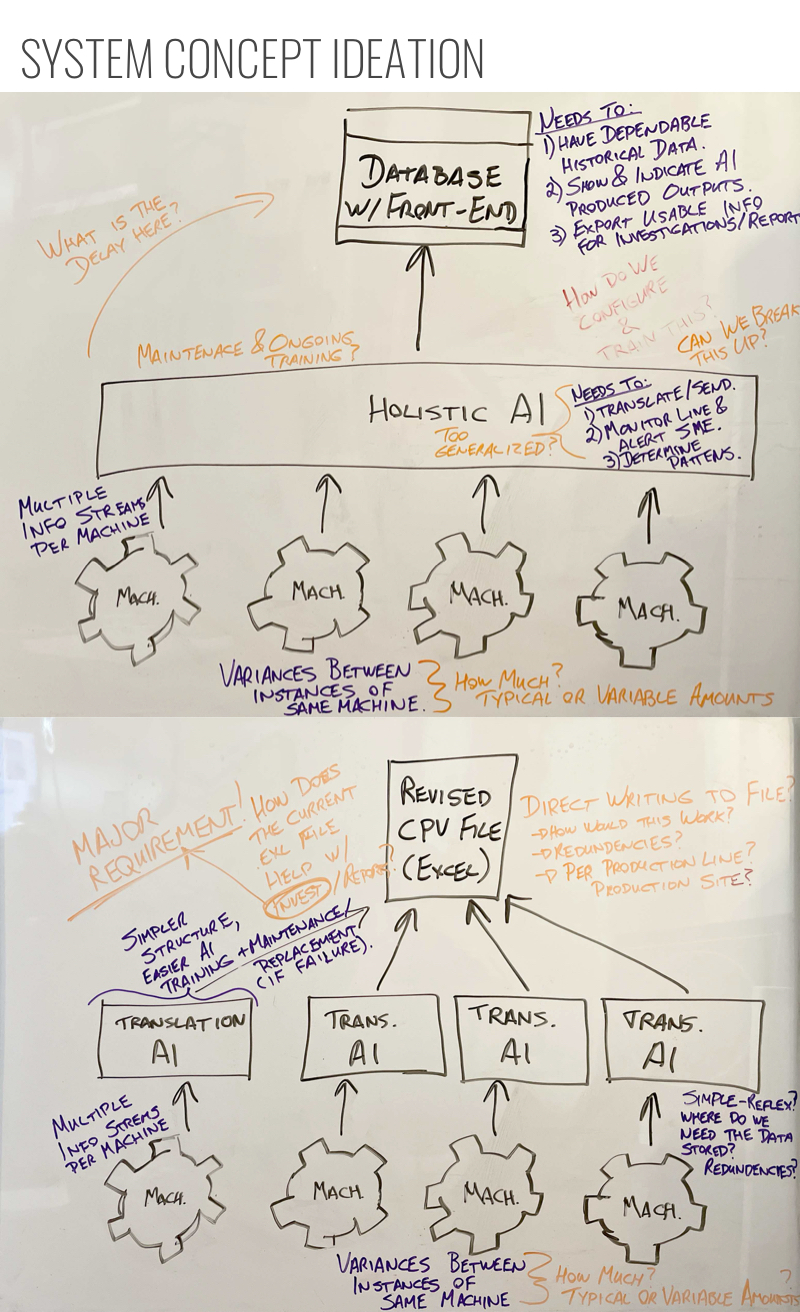 SYSTEM CONCEPT IDEATION
DATABASE
W/ FRONT-END
NEEDS TO:
1) HAVE DEPENDABLE
HISTORICAL DATA.
2) SHOW & INDICATE AI
PRODUCED OUTPUTS.
3) EXPORT USABLE INFO
FOR INVESTIGATIONS/REPORT
WHAT IS THE
DELAY HERE?
HOW DO WE
CONFIGURE
&
TRAIN THIS?
CAN WE BREAK
THIS UP?
MAINTENACE & ONGOING
TRAINING?
HOLISTIC AI
TOO
GENERALIZED?
NEEDS TO:
1) TRANSLATE/SEND.
2) MONITOR LIVE &
ALERT SME.
3) DETERMINE
PATTENS.
MULTIPLE
INFO STREAMS
PER MACHINE
MACH.
MACH.
MACH.
MACH.
VARIANCES BETWEEN
INSTANCES OF
SAME MACHINE.
HOW MUCH?
TYPICAL OR VARIABLE AMOUNTS
MAJOR
REQUIREMENT!
HOW DOES
THE CURRENT
EXL FILE
HELP W/
INVEST/REPORT?
REVISED
CPV FILE
(EXCEL)
DIRECT WRITING TO FILE?
→HOW WOULD THIS WORK?
→REDUNDENCIES?
→PER PRODUCTION LINE?
PRODUCTION SITE?
SIMPLER
STRUCTURE,
EASIER AI
TRAINING + MAINTENANCE/
REPLACEMENT
(IF FAILURE).
TRANSLATION
AI
TRANS.
AI
TRANS.
AI
TRANS.
AI
MULTIPLE
INFO STREMS
PER MACHINE
SIMPLE-REFLEX?
WHERE DO WE
NEED THE DATA
STORED?
REDUNDENCIES?
MACH.
MACH.
MACH.
MACH.
VARIANCES BETWEEN
INSTANCES OF
SAME MACHINE
HOW MUCH?
TYPICAL OR VARIABLE AMOUNTS?